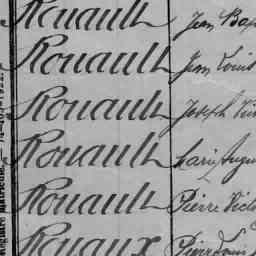 Rouault Jean Bap
Rouault Jean Louis
Rouault Joseph
Rouault Marie Augu
Rouault Pierre Vict
Rouaux Pierre Louis